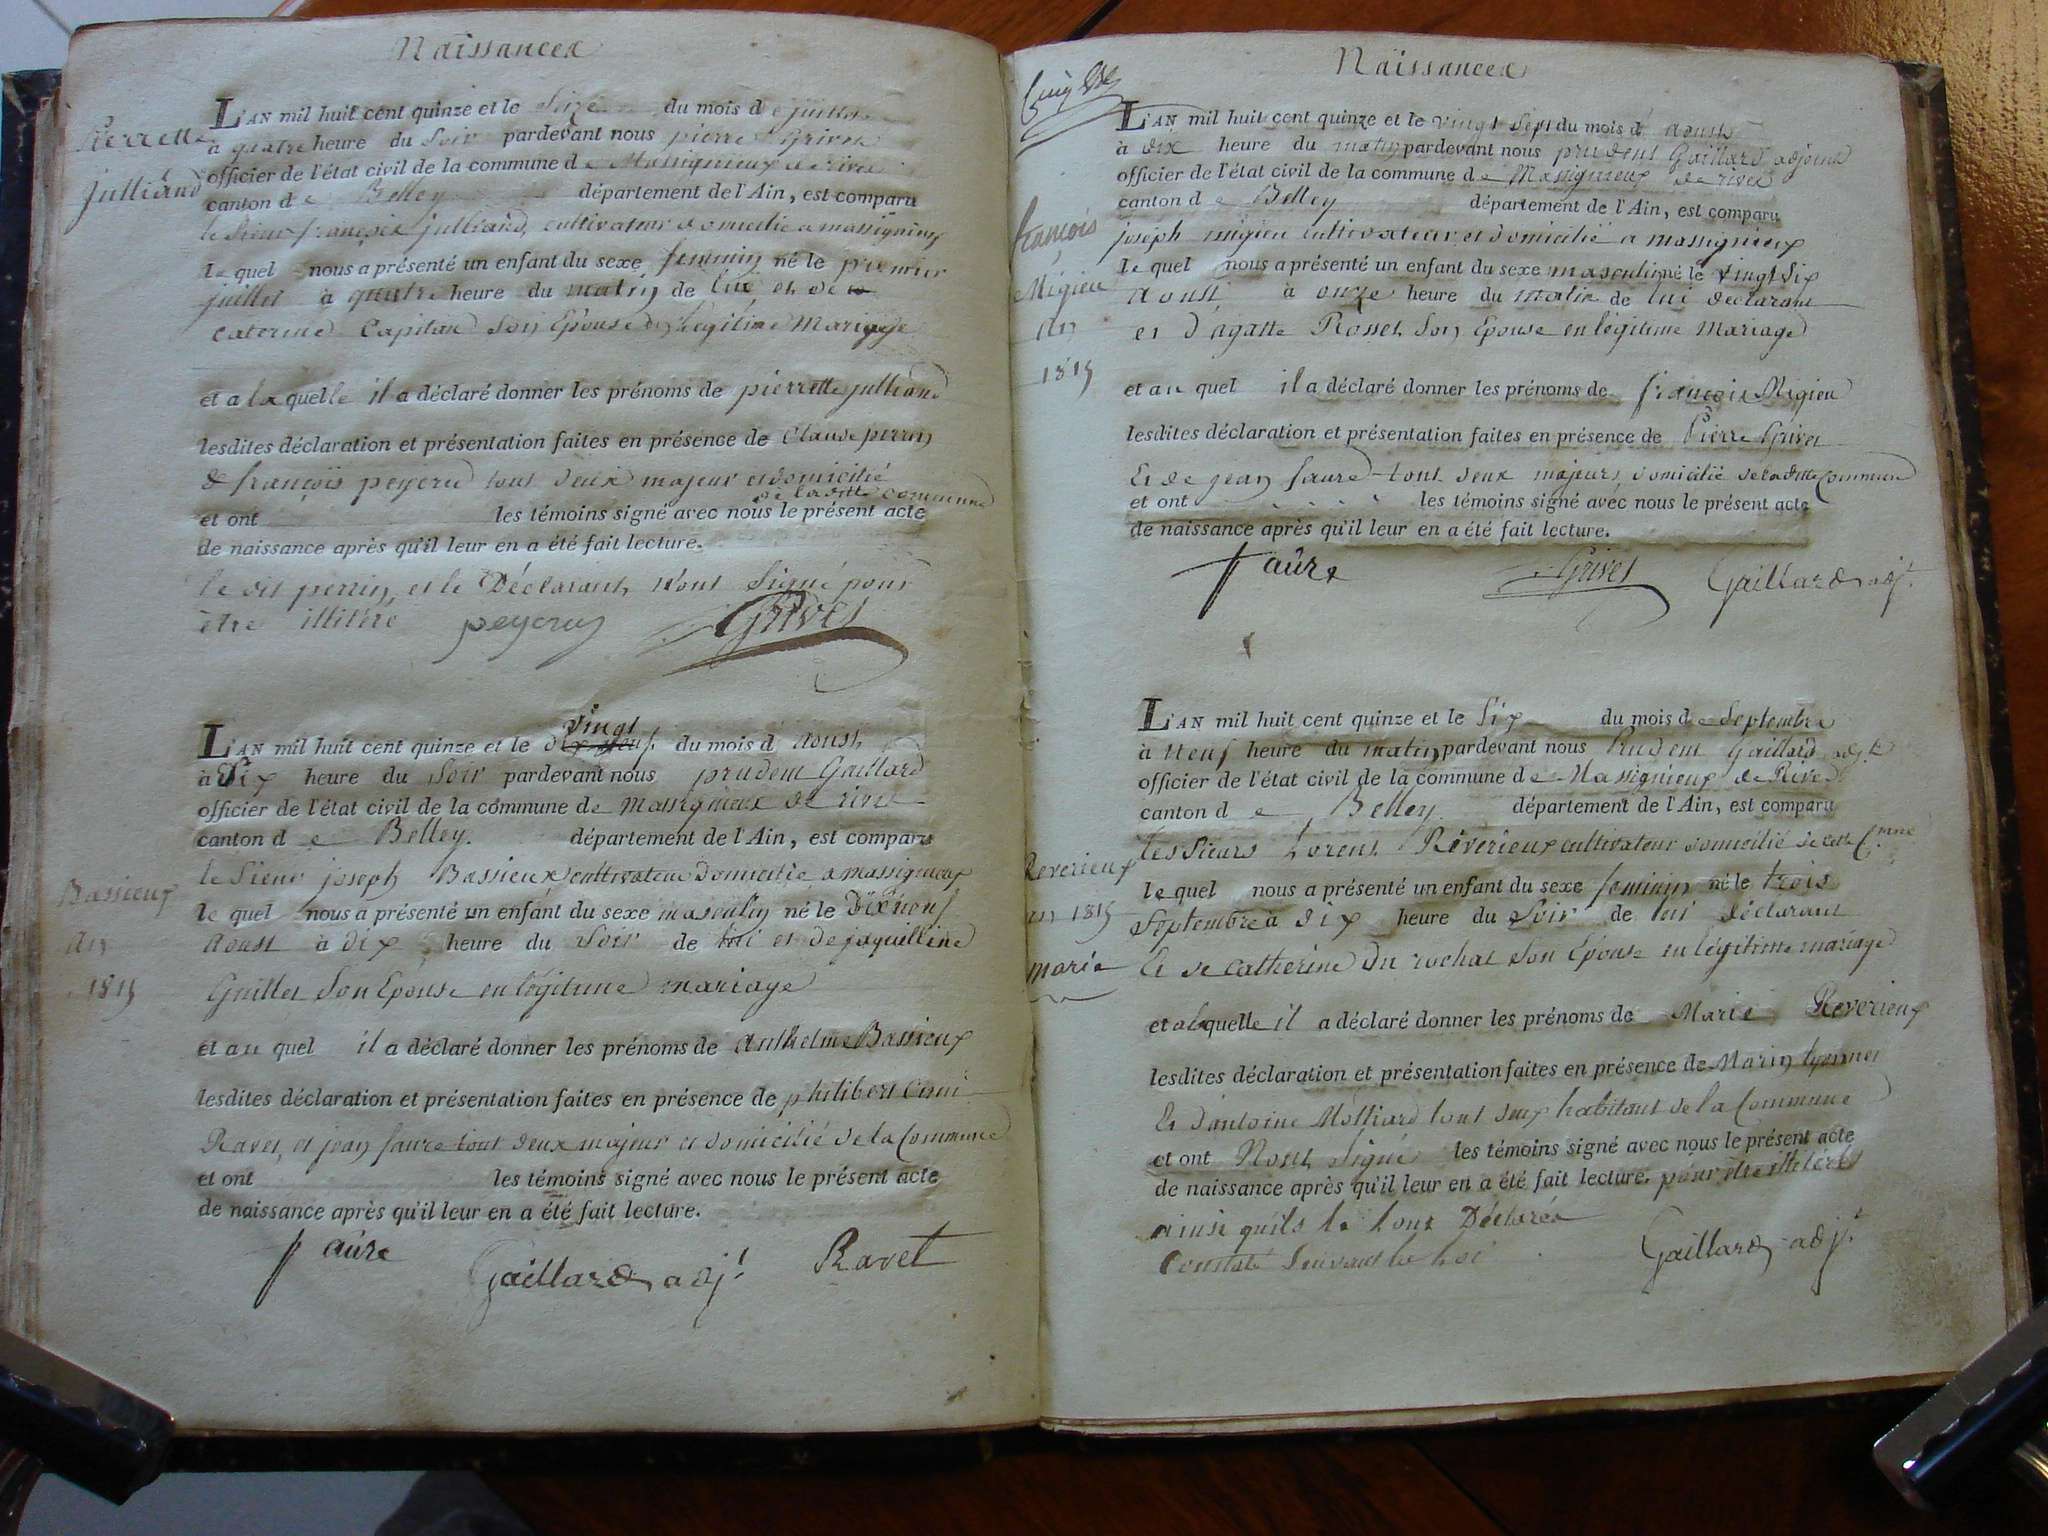 Naissances
Pierrette
julliand
L'AN mil huit cent quinze et le Seize du mois de juillet
à quatre heure du Soir pardevant nous pierre Grivet
officier de l'état civil de la commune de Massignieux de rives
canton de Belley département de l'Ain, est comparu
le Sieur françois julliand, cultivateur domicilie a massignieux
le quel nous a présenté un enfant du sexe feminin né le premier
juillet à quatre heure du matin de lui et de
caterine Capitan Son Epouse en legitime Mariage
et a la quelle il a déclaré donner les prénoms de pierrette julliand
lesdites déclaration et présentation faites en présence de Claude perrin
& françois peycru tout deux majeur et domicilié
de la ditte commune
et ont les témoins signé avec nous le présent acte
de naissance après qu'il leur en a été fait lecture.
le dit perrin, et le Déclarant, n'ont Signé pour
être illitéré peycru Grivet
Bassieux
an
1815
L'AN mil huit cent quinze et le dix neuf vingt du mois d aoust
à Six heure du Soir pardevant nous prudent Gaillard
officier de l'état civil de la commune de massignieux de rives
canton de Belley. département de l'Ain, est comparu
le Sieur joseph Bassieux cultivateur Domicilie a massignieux
le quel nous a présenté un enfant du sexe masculin né le Dixneuf
Aoust à dix heure du Soir de lui et de jaquilline
Guillet Son Epouse en légitime mariage
et au quel il a déclaré donner les prénoms de anthelme Bassieux
lesdites déclaration et présentation faites en présence de philibert
Ravet, et jean faure tout deux majeur et domicilié de la Commune
et ont les témoins signé avec nous le présent acte
de naissance après qu'il leur en a été fait lecture.
faure Gaillard adj.t Ravet
Naissances
françois
Migieu
an
1815
L'AN mil huit cent quinze et le vingt Sept du mois d aoust
à dix heure du matin pardevant nous prudent Gaillard adjoint
officier de l'état civil de la commune de Massignieux de rives
canton de Belley département de l'Ain, est comparu
joseph migieu cultivateur et domicilié a massignieux
le quel nous a présenté un enfant du sexe masculin né le vingt Six
Aoust à onze heure du matin de lui déclarant
et d'agatte Rosset Son Epouse en légitime Mariage
et au quel il a déclaré donner les prénoms de françois Migieu
lesdites déclaration et présentation faites en présence de Pierre Grivet
Et de jean faure tout deux majeurs domicilié de la ditte Commune
et ont les témoins signé avec nous le présent acte
de naissance après qu'il leur en a été fait lecture.
faure Grivet Gaillard adj.t
Reverieux
an 1815
marie
L'AN mil huit cent quinze et le Six du mois de Septembre
à Neuf heure du matin pardevant nous Prudent Gaillard adj.t
officier de l'état civil de la commune de Massignieux de Rives
canton de Belley département de l'Ain, est comparu
les Sieurs Lorent Réverieux cultivateur domicilié de cette C.mne
le quel nous a présenté un enfant du sexe feminin né le trois
Septembre à dix heure du Soir de lui déclarant
Et de catherine Du rochat Son Epouse en légitime mariage
et a la quelle il a déclaré donner les prénoms de Marie Reverieux
lesdites déclaration et présentation faites en présence de Marin
Et d'antoine Molliard tout deux habitant de la Commune
et ont Nont Signé les témoins signé avec nous le présent acte
de naissance après qu'il leur en a été fait lecture. pour être illitéré
ainsi quils le Déclarés
Constaté Suivant la Loi Gaillard adj.t